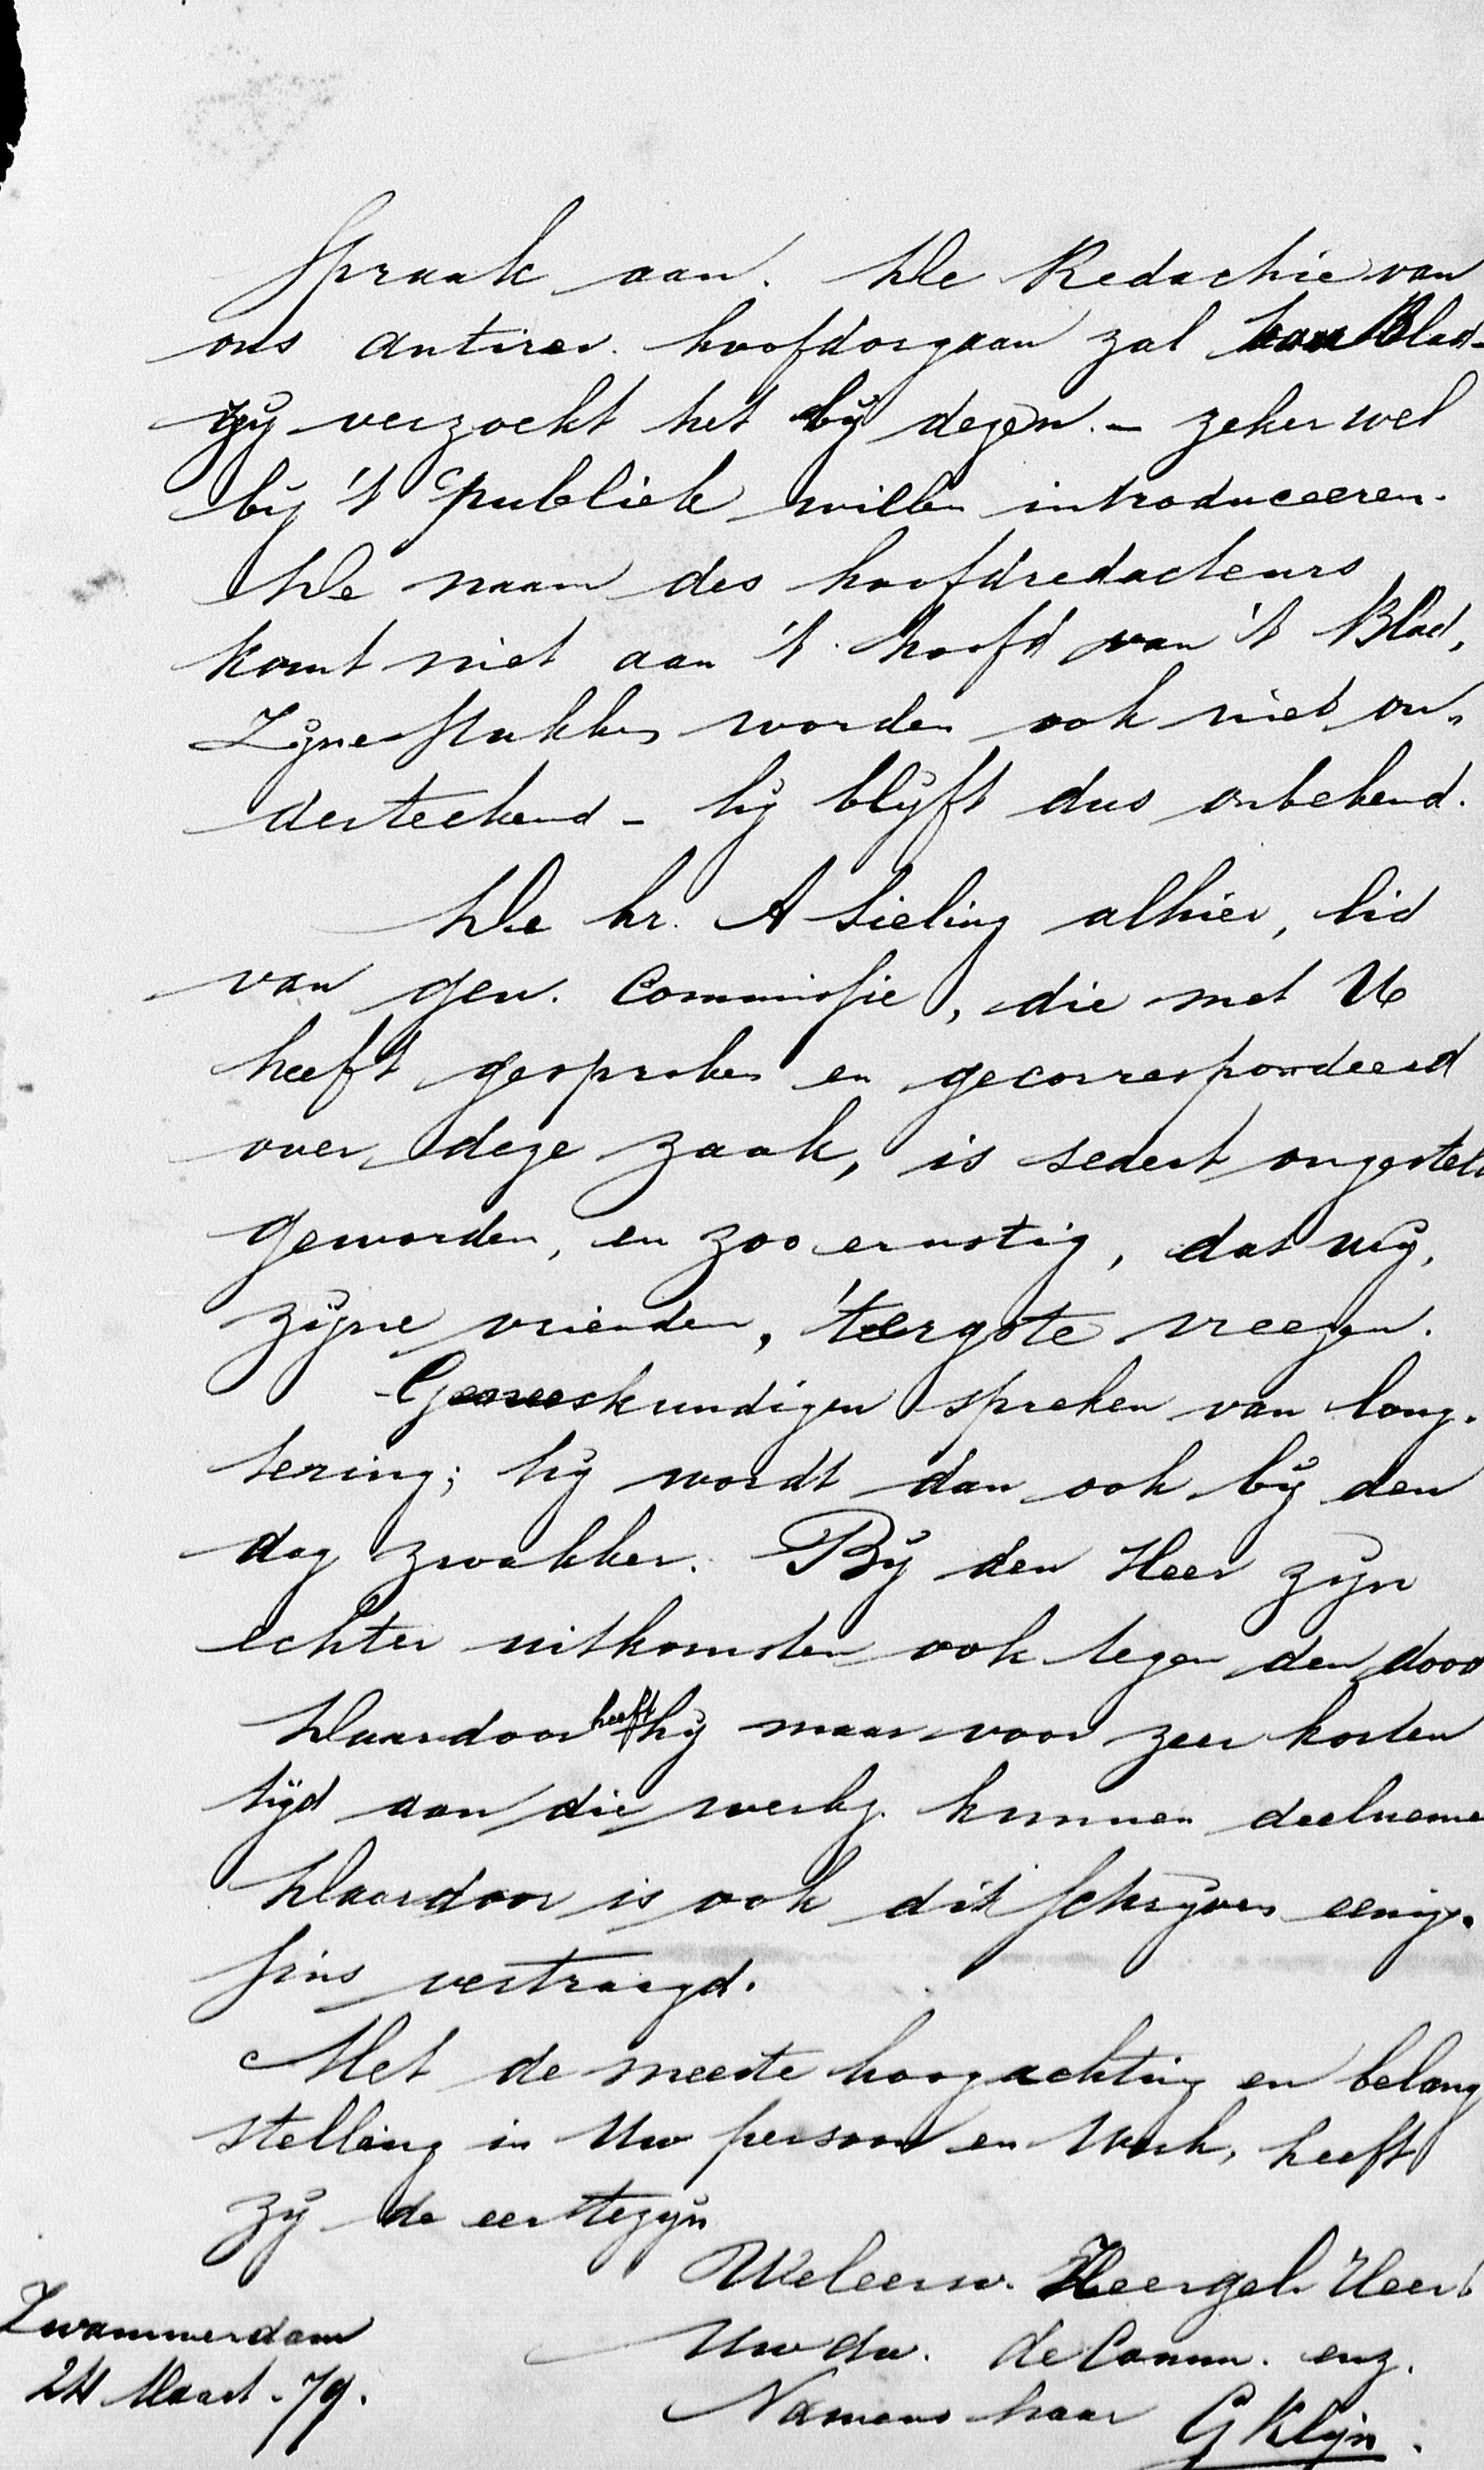 spraak aan. De Redactie van
ons antirev. hoofdorgaan zal Blad-
zij verzoekt het bij dezen. - zeker wel
bij 't publiek willen introduceeren.
De naam des hoofdredacteurs
komt niet aan 't hoofd van 't Blad,
Zijne stukken worden ook niet on-
derteekend - hij blijft dus onbekend.
De hr. A Sieling alhier, lid
van gen. Commissie, die met U
heeft gesproken en gecorrespondeerd
over deze zaak, is sedert ongesteld
geworden, en zoo ernstig, dat wij,
zijne vrienden, 't ergste vreezen.
Geneeskundigen spreken van long-
tering; hij wordt dan ook bij den
dag zwakker. Bij den Heer zijn
echter uitkomsten ook tegen den dood
Daardoor heeft hij maar voor zeer korten
tijd aan die werkz. kunnen deelneme
Daardoor is ook dit schrijven eenig-
sins vertraagd.
Met de meeste hoogachting en belang
stelling in Uw persoon en Werk, heeft
zij de eer te zijn
Weleerw. Heer
Uw dw. de Comm. enz.
Namens haar G Klijn.
Zwammerdam
24 Maart -79.